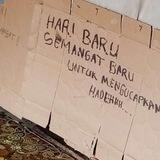 HARI BARU
SEMANGAT BARU
UNTUK MENGUCAPKAN